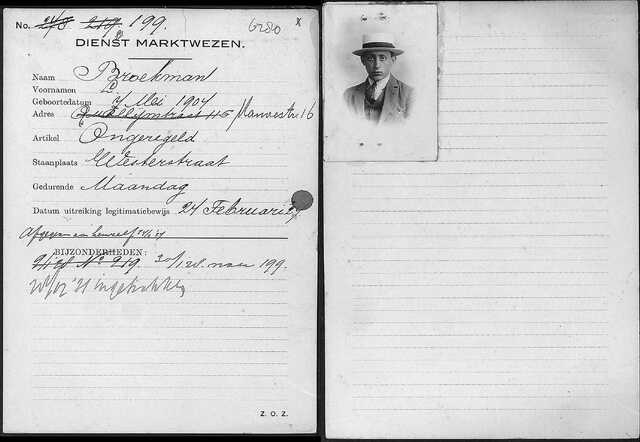 No. 219. 199.
6280 x
DIENST MARKTWEZEN.
Naam Broekman
Voornamen L
Geboortedatum 7 Mei 1904
Adres 115 16
Artikel Ongeregeld
Staanplaats Westerstraat
Gedurende Maandag
Datum uitreiking legitimatiebewijs 24 Februari
BIJZONDERHEDEN:
No 219. naar 199.
ingetrokken
Z. O. Z.